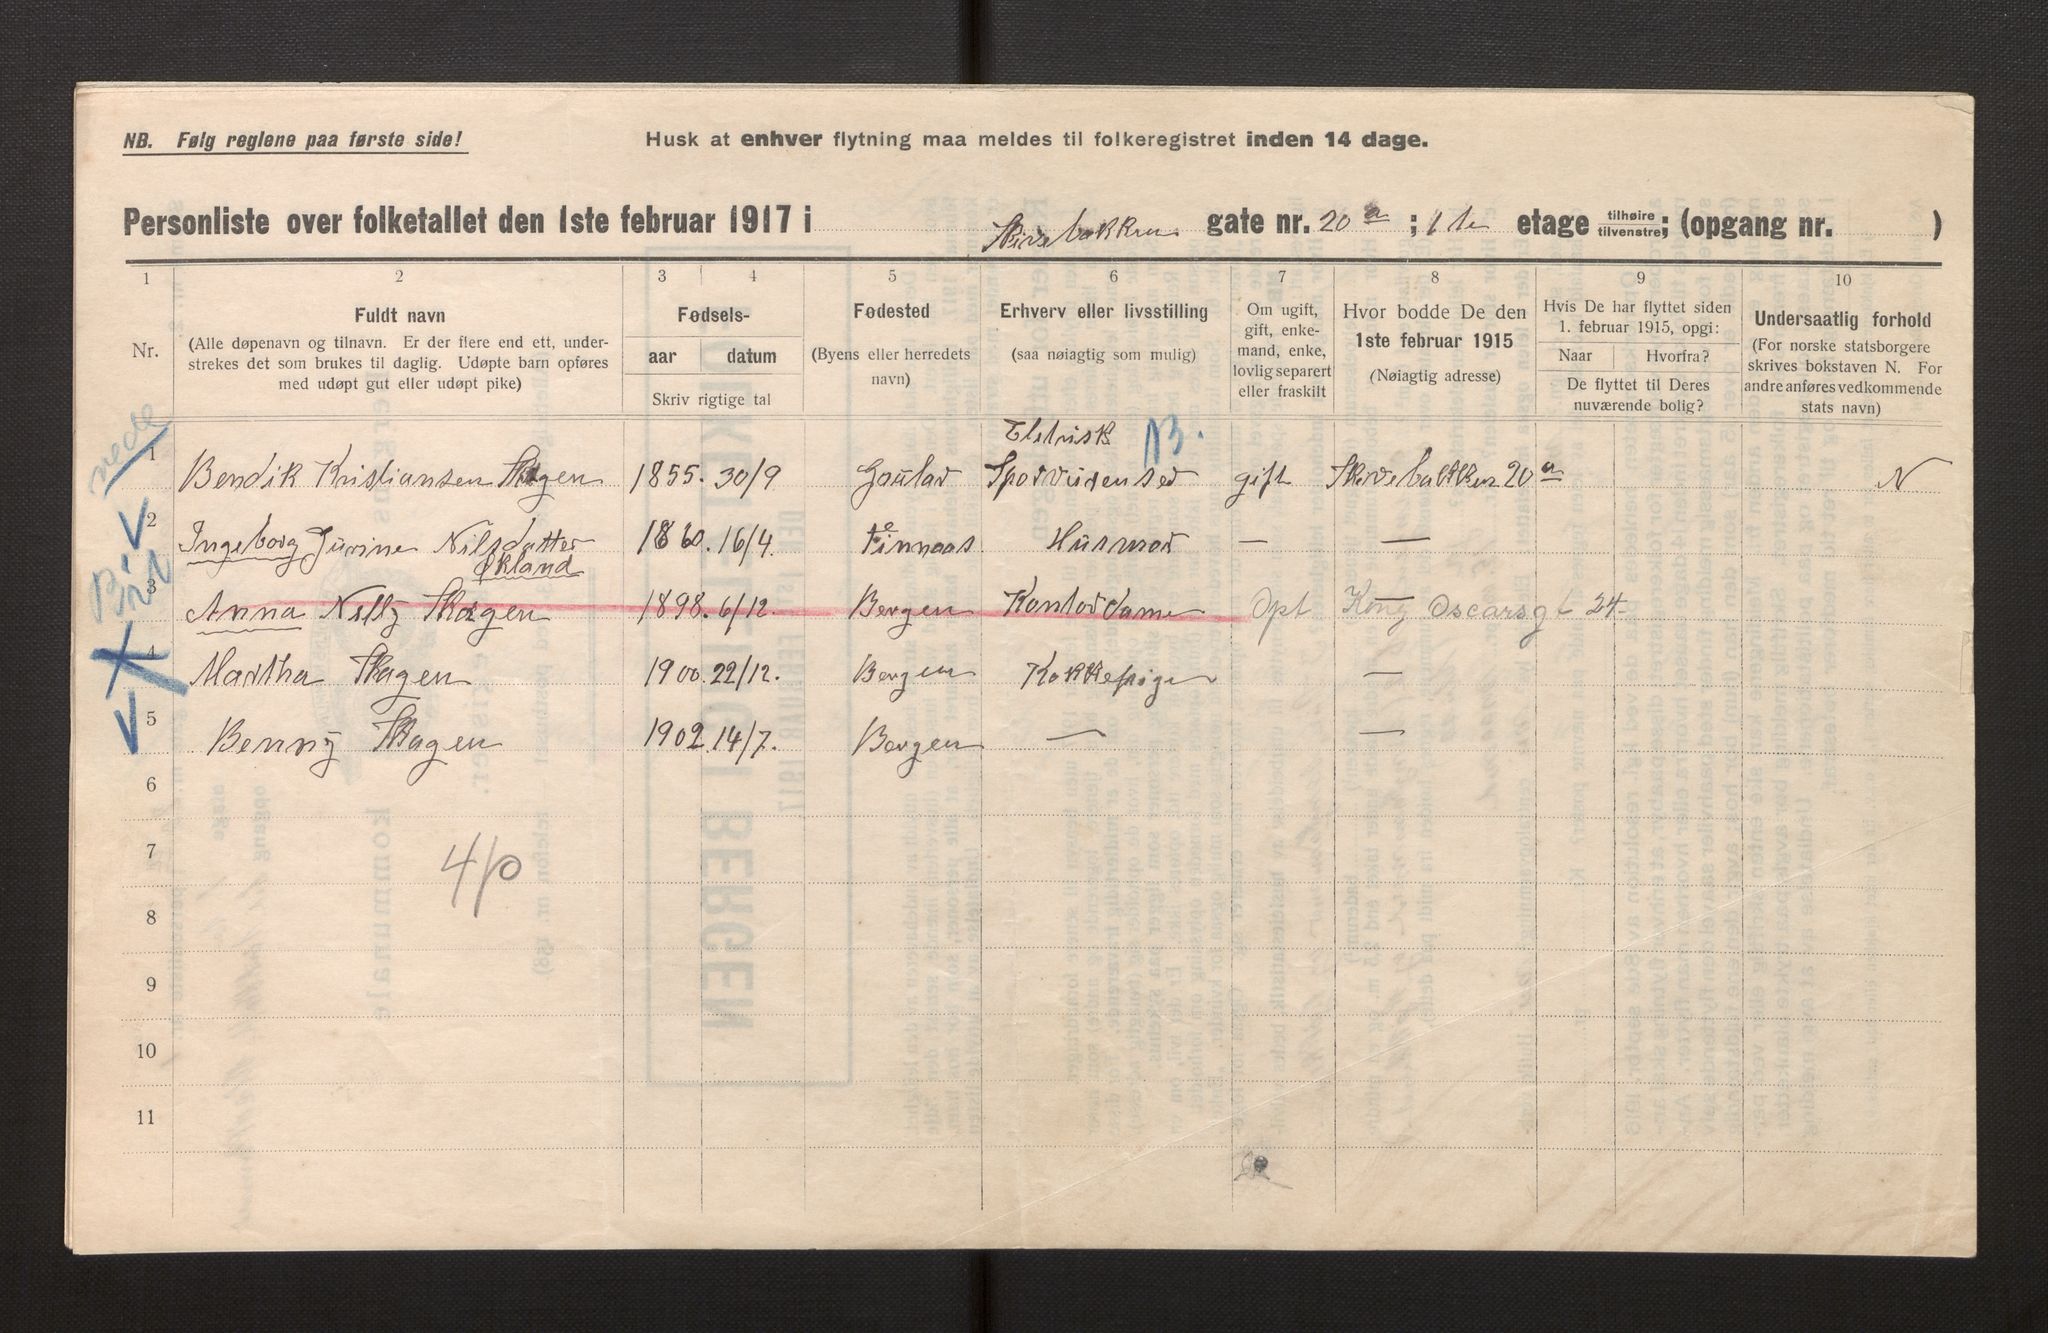 NB. Følg reglene paa første side!
Husk at enhver flytning maa meldes til folkeregistret inden 14 dage.
Personliste over folketallet den 1ste februar 1917 i Skivebakken gate nr. 20 a ; 1 te etage tilhøire tilvenstre; (opgang nr. )
1 2 3 4 5 6 7 8 9 10
Nr.
Fuldt navn
(Alle døpenavn og tilnavn. Er der flere end ett, under-
strekes det som brukes til daglig. Udøpte barn opføres
med udøpt gut eller udøpt pike)
Fødsels-
aar datum
Skriv rigtige tal
Fødested
(Byens eller herredets
navn)
Erhverv eller livsstilling
(saa nøiagtig som mulig)
Om ugift,
gift, enke-
mand, enke,
lovlig separert
eller fraskilt
Hvor bodde De den
1ste februar 1915
(Nøiagtig adresse)
Hvis De har flyttet siden
1. februar 1915, opgi:
Naar Hvorfra?
De flyttet til Deres
nuværende bolig?
Undersaatlig forhold
(For norske statsborgere
skrives bokstaven N. For
andre anføres vedkommende
stats navn)
Eletrisk B.
1 Bendik Kristiansen Skagen 1855. 30/9 Gaular gift Skivebakken 20 a N
2 Ingeborg Nilsdatter 1860. 16/4. Finnaas Husmor — —
Økland
3 Anna Skagen 1898. 6/12. Bergen Kontordame Opt Kong Oscarsgt 24.
4 Martha Skagen 1900. 22/12. Bergen Kokkepige —
5 Benny Skagen 1902. 14/7. Bergen — —
6
7
4/0
8
9
10
11